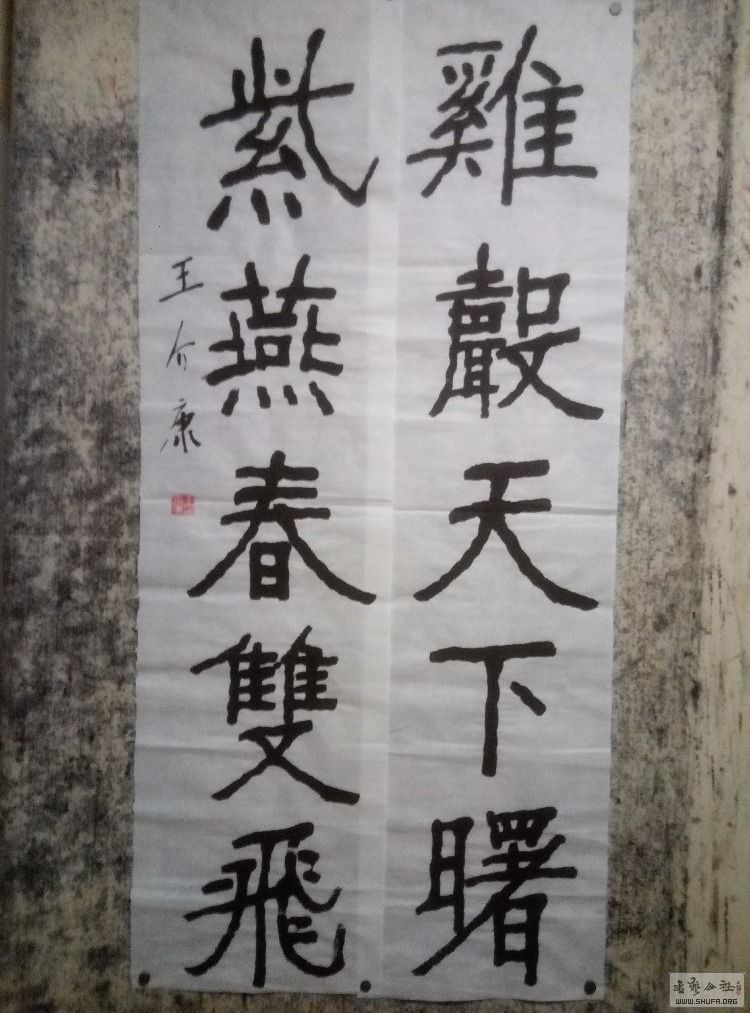 雞聲天下曙
紫燕春雙飛
王介康
書藝公社
WWW.SHUFA.ORG